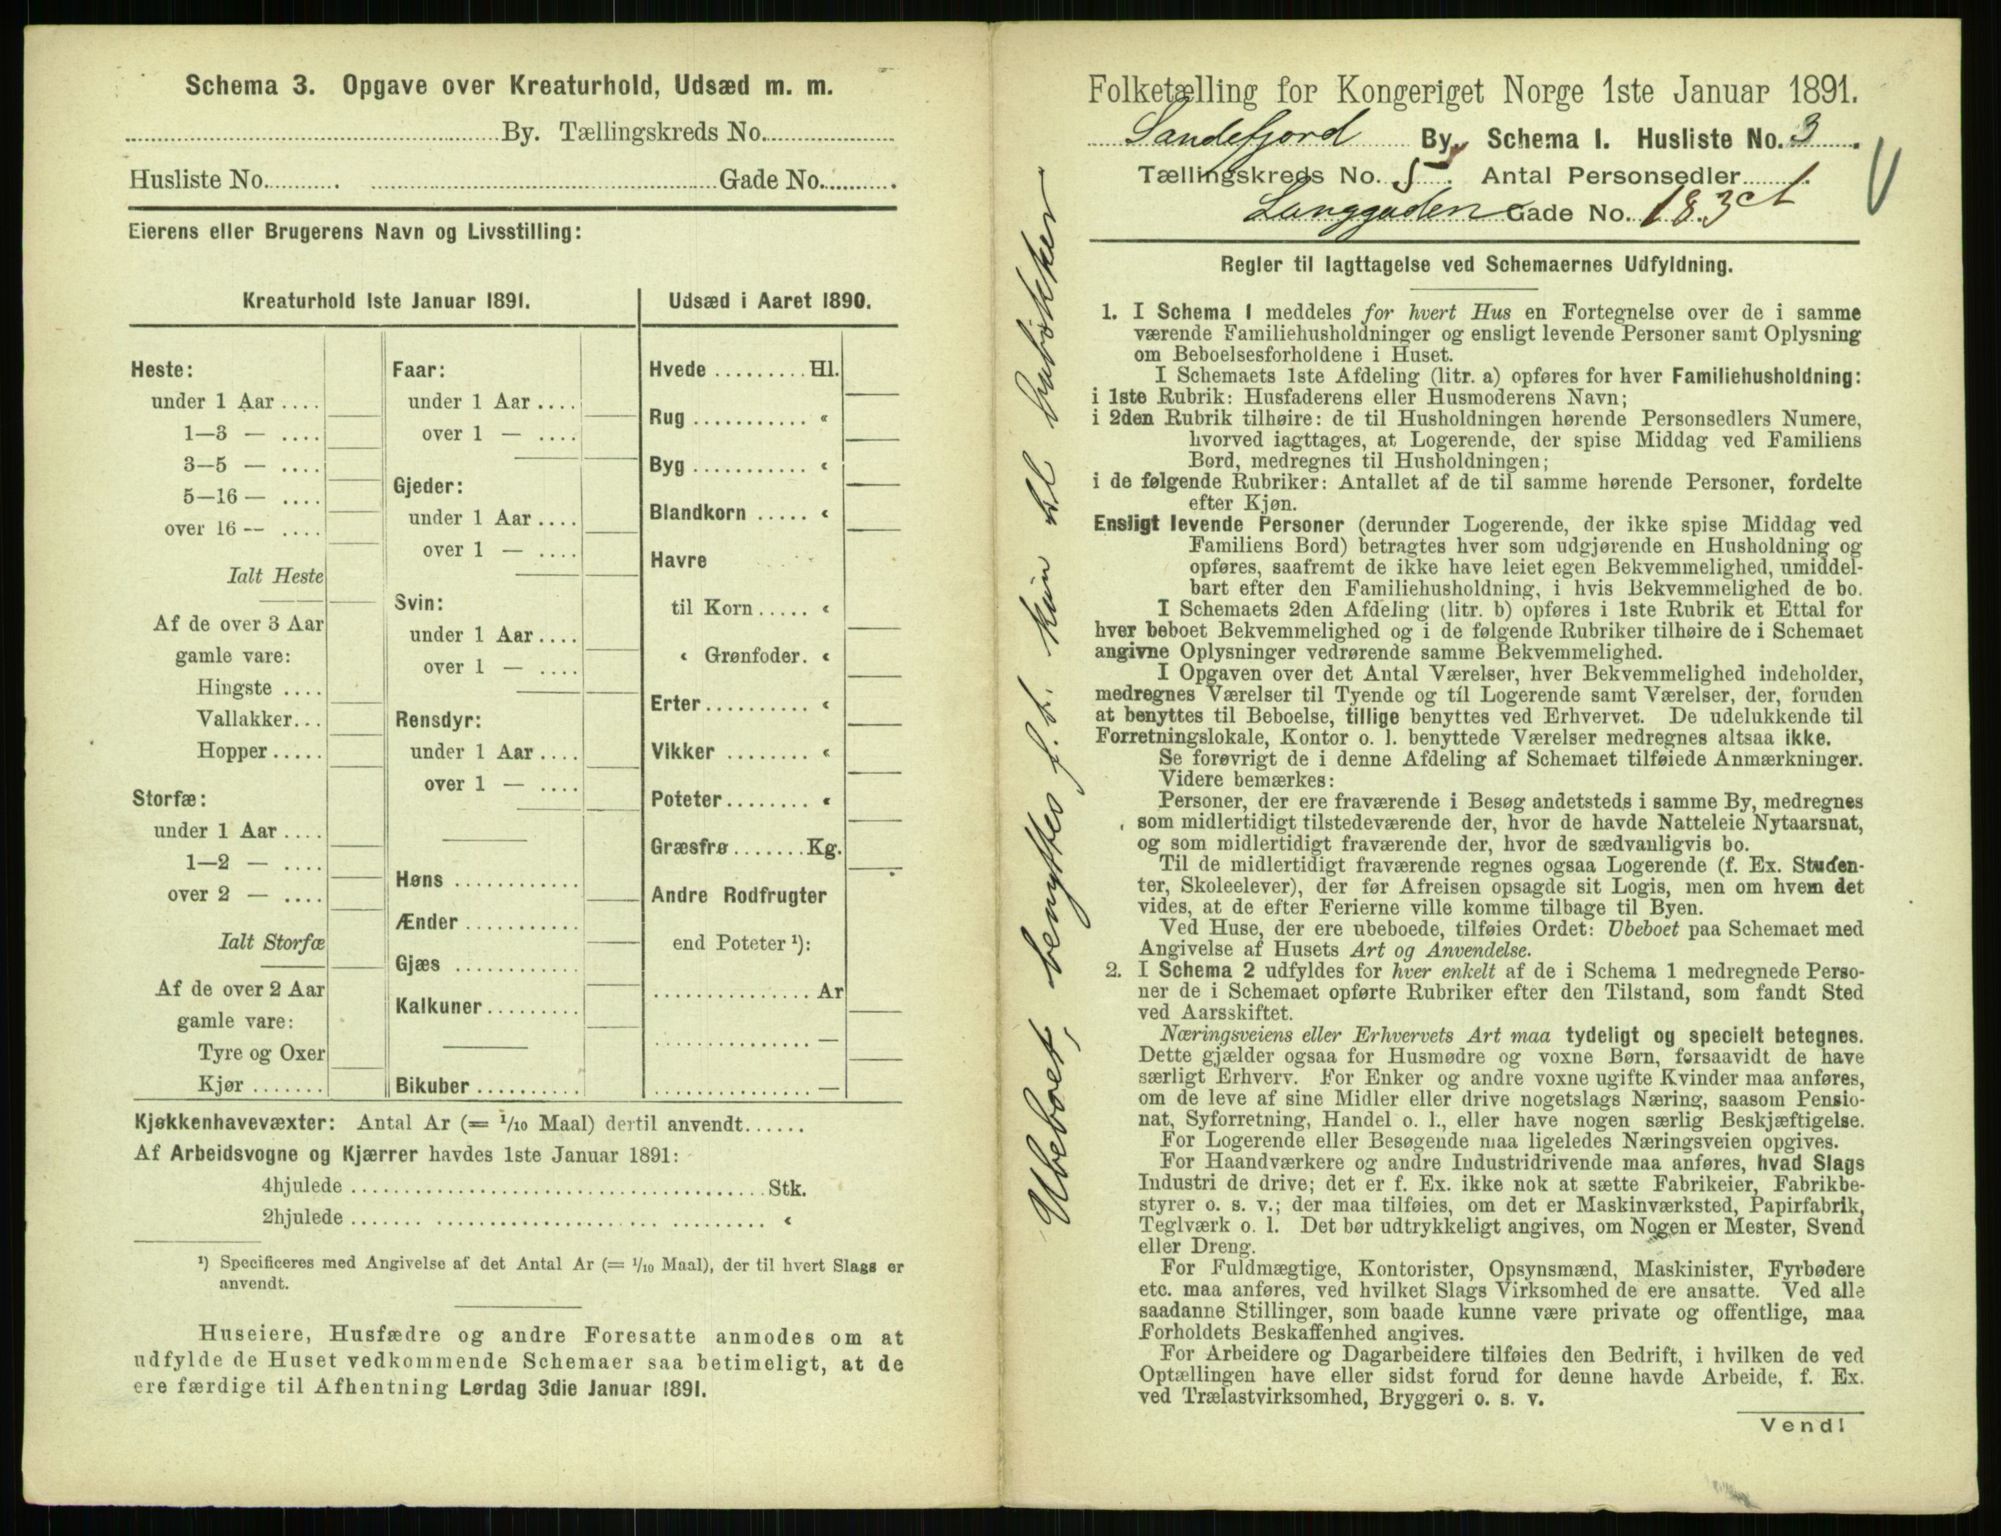 Schema 3. Opgave over Kreaturhold, Udsæd m. m.
By. Tællingskreds No.
Husliste No. Gade No.
Eierens eller Brugerens Navn og Livsstilling:
Kreaturhold 1ste Januar 1891.
Heste:
under 1 Aar
1—3 —
3—5 —
5—16 —
over 16 —
Ialt Heste
Af de over 3 Aar
gamle vare:
Hingste
Vallakker
Hopper
Storfæ:
under 1 Aar
1—2 —
over 2 —
Ialt Storfæ
Af de over 2 Aar
gamle vare:
Tyre og Oxer
Kjør
Faar:
under 1 Aar
over 1 —
Gjeder:
under 1 Aar
over 1 —
Svin:
under 1 Aar
over 1 —
Rensdyr:
under 1 Aar
over 1 —
Høns
Ænder
Gjæs
Kalkuner
Bikuber
Udsæd i Aaret 1890.
Hvede Hl.
Rug «
Byg «
Blandkorn «
Havre
til Korn «
« Grønfoder. «
Erter «
Vikker «
Poteter «
Græsfrø Kg.
Andre Rodfrugter
end Poteter ¹):
Ar
—
—
Kjøkkenhavevæxter: Antal Ar (= 1/10 Maal) dertil anvendt
Af Arbeidsvogne og Kjærrer havdes 1ste Januar 1891:
4hjulede Stk.
2hjulede «
¹) Specificeres med Angivelse af det Antal Ar (= 1/10 Maal), der til hvert Slags er
anvendt.
Huseiere, Husfædre og andre Foresatte anmodes om at
udfylde de Huset vedkommende Schemaer saa betimeligt, at de
ere færdige til Afhentning Lørdag 3die Januar 1891.
Ubeboet, benyttes f. t. kun til
Folketælling for Kongeriget Norge 1ste Januar 1891.
Sandefjord By. Schema 1. Husliste No. 3
Tællingskreds No. 5. Antal Personsedler
Langgaden Gade No. 183 ct
Regler til Iagttagelse ved Schemaernes Udfyldning.
1. I Schema 1 meddeles for hvert Hus en Fortegnelse over de i samme
værende Familiehusholdninger og ensligt levende Personer samt Oplysning
om Beboelsesforholdene i Huset.
I Schemaets 1ste Afdeling (litr. a) opføres for hver Familiehusholdning:
i 1ste Rubrik: Husfaderens eller Husmoderens Navn;
i 2den Rubrik tilhøire: de til Husholdningen hørende Personsedlers Numere,
hvorved iagttages, at Logerende, der spise Middag ved Familiens
Bord, medregnes til Husholdningen;
i de følgende Rubriker: Antallet af de til samme hørende Personer, fordelte
efter Kjøn.
Ensligt levende Personer (derunder Logerende, der ikke spise Middag ved
Familiens Bord) betragtes hver som udgjørende en Husholdning og
opføres, saafremt de ikke have leiet egen Bekvemmelighed, umiddel-
bart efter den Familiehusholdning, i hvis Bekvemmelighed de bo.
I Schemaets 2den Afdeling (litr. b) opføres i 1ste Rubrik et Ettal for
hver beboet Bekvemmelighed og i de følgende Rubriker tilhøire de i Schemaet
angivne Oplysninger vedrørende samme Bekvemmelighed.
I Opgaven over det Antal Værelser, hver Bekvemmelighed indeholder,
medregnes Værelser til Tyende og til Logerende samt Værelser, der, foruden
at benyttes til Beboelse, tillige benyttes ved Erhvervet. De udelukkende til
Forretningslokale, Kontor o. l. benyttede Værelser medregnes altsaa ikke.
Se forøvrigt de i denne Afdeling af Schemaet tilføiede Anmærkninger.
Videre bemærkes:
Personer, der ere fraværende i Besøg andetsteds i samme By, medregnes
som midlertidigt tilstedeværende der, hvor de havde Natteleie Nytaarsnat,
og som midlertidigt fraværende der, hvor de sædvanligvis bo.
Til de midlertidigt fraværende regnes ogsaa Logerende (f. Ex. Studen-
ter, Skoleelever), der før Afreisen opsagde sit Logis, men om hvem det
vides, at de efter Ferierne ville komme tilbage til Byen.
Ved Huse, der ere ubeboede, tilføies Ordet: Ubeboet paa Schemaet med
Angivelse af Husets Art og Anvendelse.
2. I Schema 2 udfyldes for hver enkelt af de i Schema 1 medregnede Perso-
ner de i Schemaet opførte Rubriker efter den Tilstand, som fandt Sted
ved Aarsskiftet.
Næringsveiens eller Erhvervets Art maa tydeligt og specielt betegnes.
Dette gjælder ogsaa for Husmødre og voxne Børn, forsaavidt de have
særligt Erhverv. For Enker og andre voxne ugifte Kvinder maa anføres,
om de leve af sine Midler eller drive nogetslags Næring, saasom Pensio-
nat, Syforretning, Handel o. l., eller have nogen særlig Beskjæftigelse.
For Logerende eller Besøgende maa ligeledes Næringsveien opgives.
For Haandværkere og andre Industridrivende maa anføres, hvad Slags
Industri de drive; det er f. Ex. ikke nok at sætte Fabrikeier, Fabrikbe-
styrer o. s. v.; der maa tilføies, om det er Maskinværksted, Papirfabrik,
Teglværk o. l. Det bør udtrykkeligt angives, om Nogen er Mester, Svend
eller Dreng.
For Fuldmægtige, Kontorister, Opsynsmænd, Maskinister, Fyrbødere
etc. maa anføres, ved hvilket Slags Virksomhed de ere ansatte. Ved alle
saadanne Stillinger, som baade kunne være private og offentlige, maa
Forholdets Beskaffenhed angives.
For Arbeidere og Dagarbeidere tilføies den Bedrift, i hvilken de ved
Optællingen have eller sidst forud for denne havde Arbeide, f. Ex.
ved Trælastvirksomhed, Bryggeri o. s. v.
Vend!